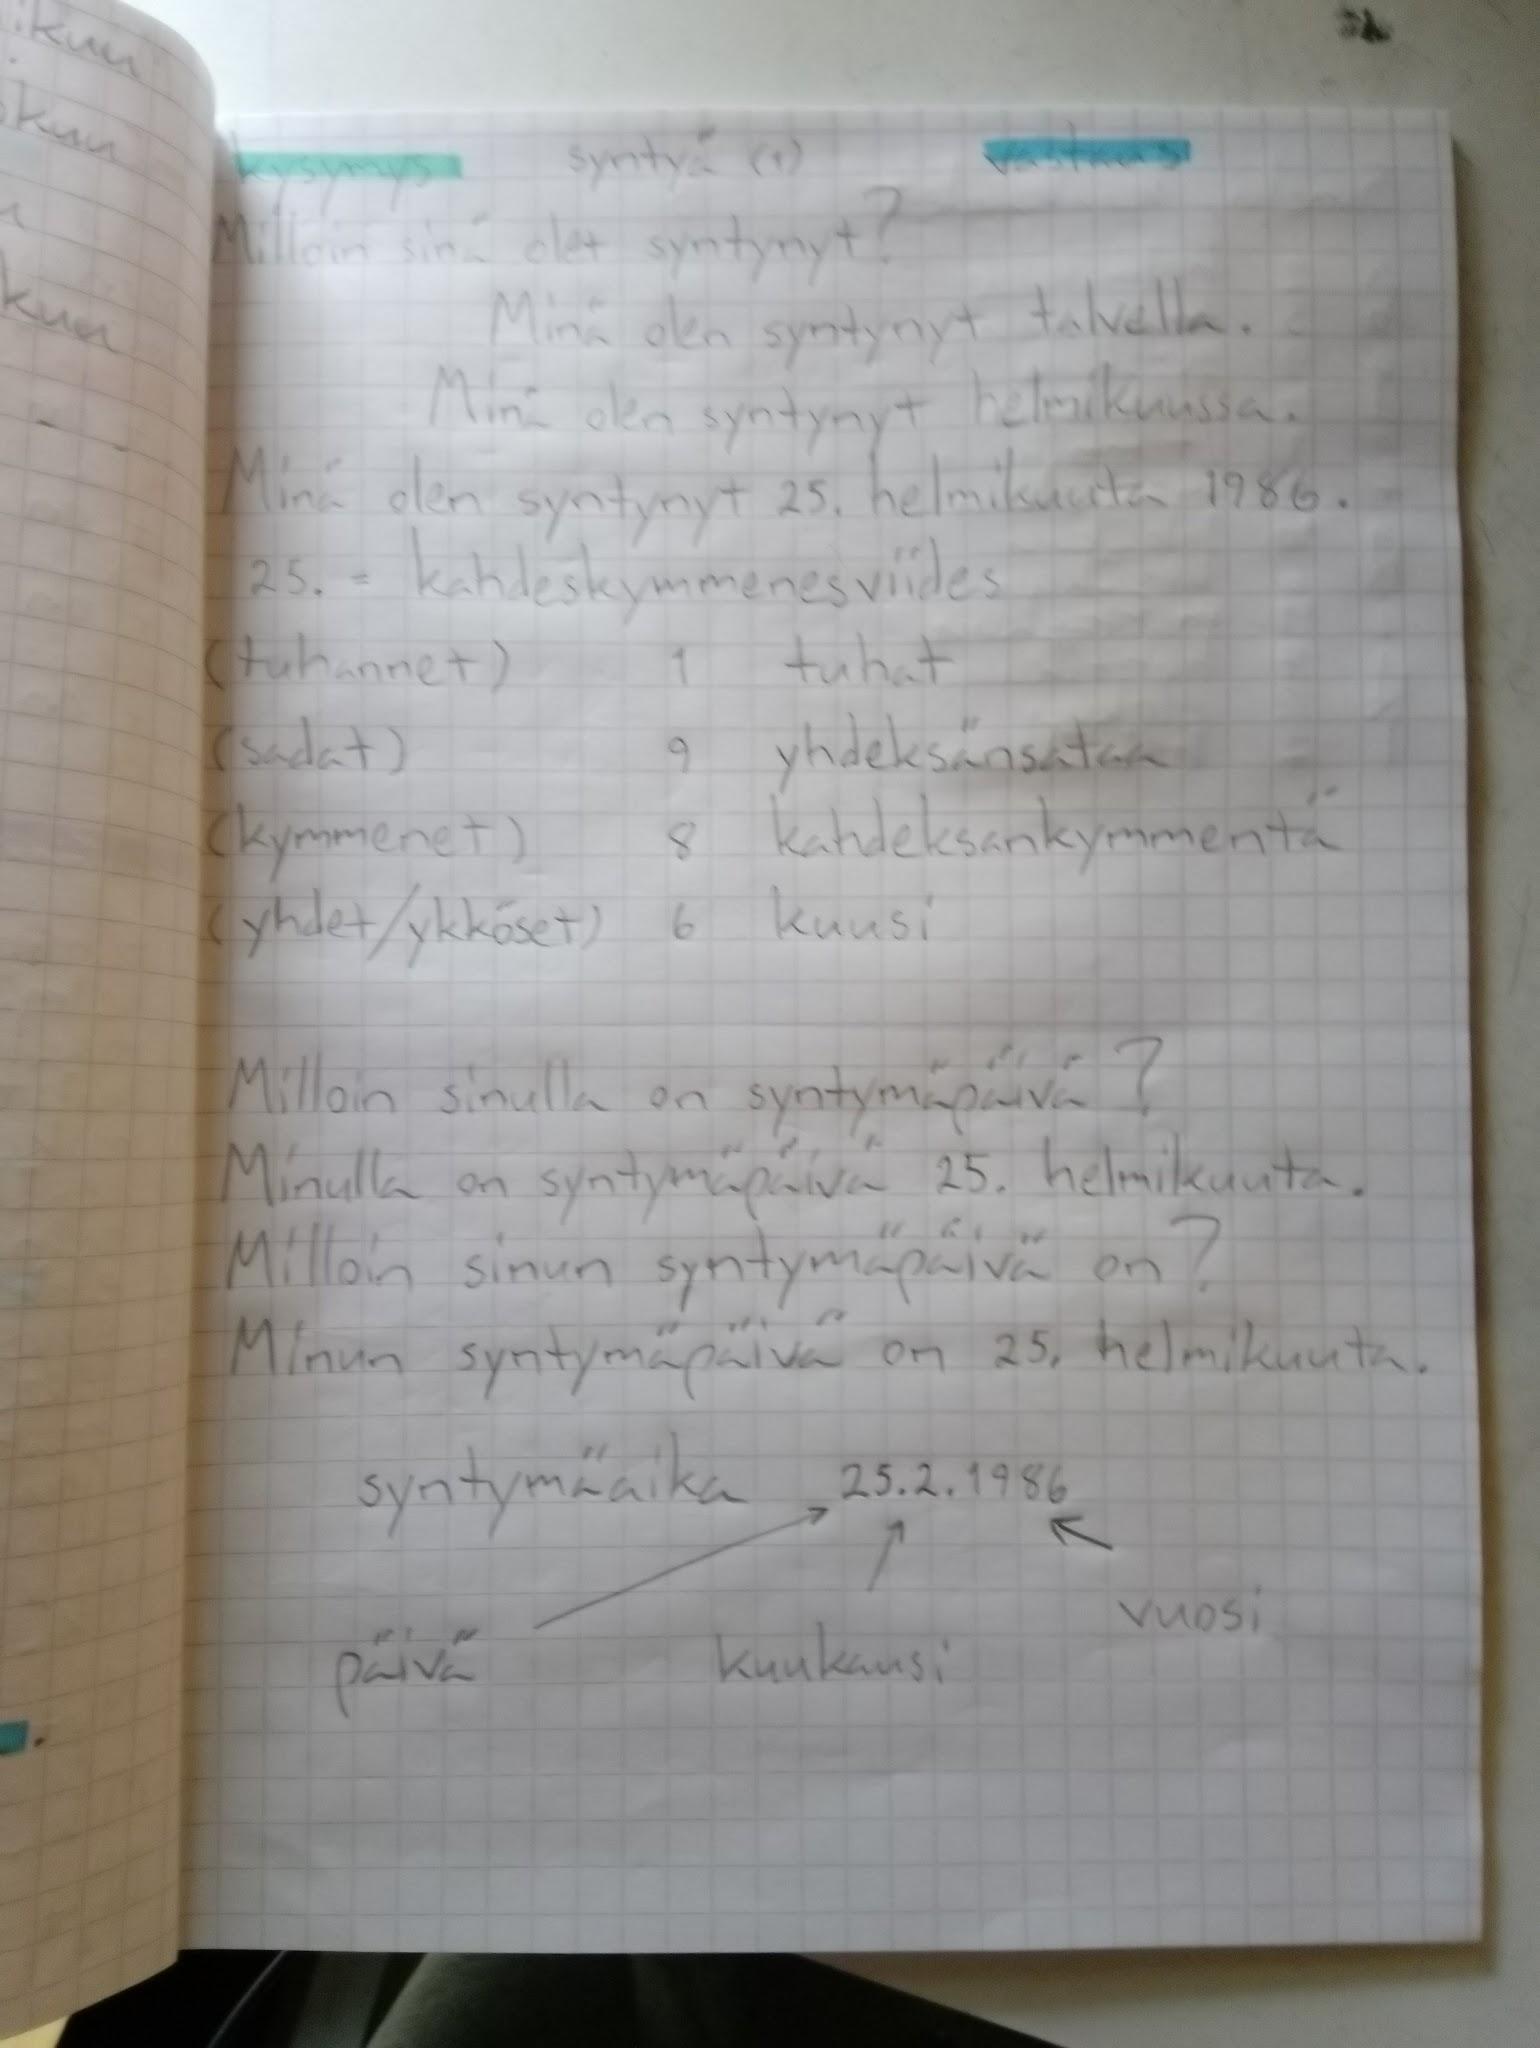 kysymys syntyä (1) vastaus
Milloin sinä olet syntynyt?
Minä olen syntynyt talvella.
Minä olen syntynyt helmikuussa.
Minä olen syntynyt 25. helmikuuta 1986.
25. = kahdeskymmenesviides
(tuhannet) 1 tuhat
(sadat) 9 yhdeksänsataa
(kymmenet) 8 kahdeksankymmentä
(yhdet/ykköset) 6 kuusi
Milloin sinulla on syntymäpäivä?
Minulla on syntymäpäivä 25. helmikuuta.
Milloin sinun syntymäpäivä on?
Minun syntymäpäivä on 25. helmikuuta.
syntymäaika 25.2.1986
vuosi
päivä kuukausi